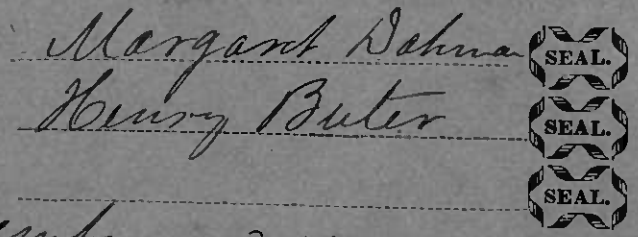 Margaret Dohman SEAL.
Henry Buter SEAL.
SEAL.